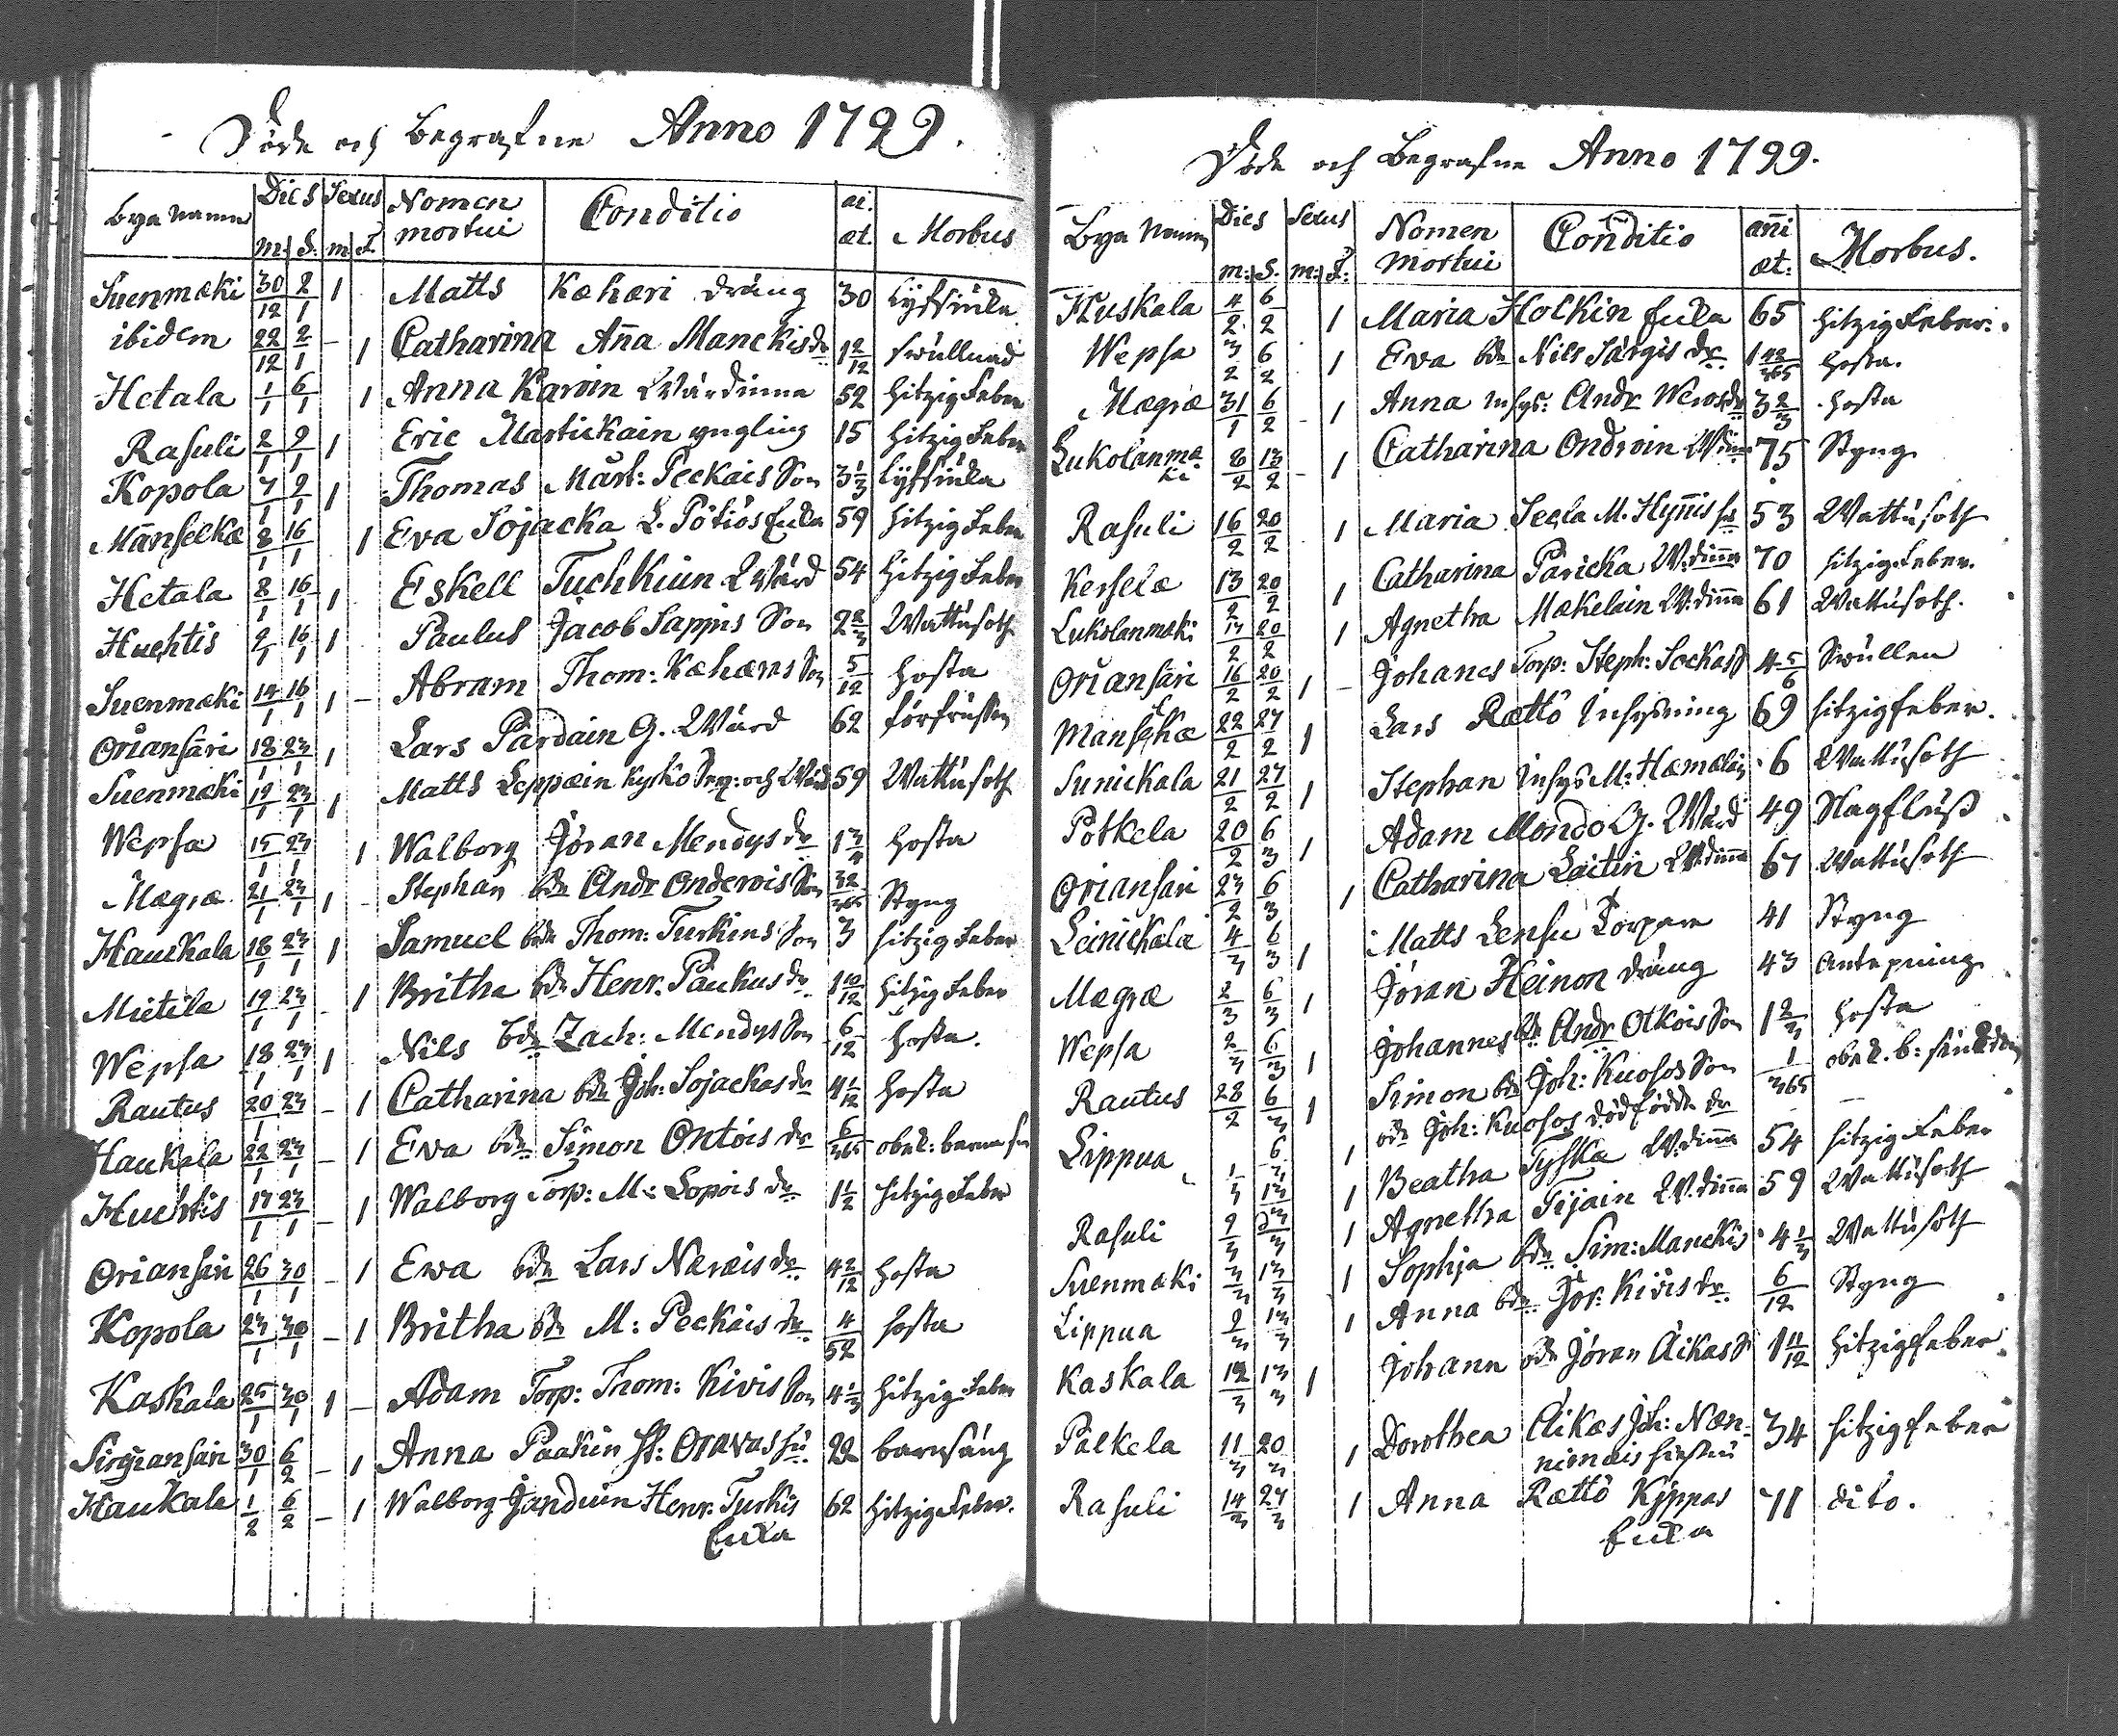 Döde och Begrafne Anno 1799.
Bya Namn Dies Sexus Nomen mortui Conditio æt. Morbus
m. S. m. F.
Suenmæki 30/12 2/1 1 Matts Kæhæri dräng 30 Lyfsiuka
ibidem 22/12 2/1 – 1 Catharina Aña Manckis dr 12/12 swullnad
Hetala 1/1 6/1 1 Anna Karvin Wärdinna 52 Hitzig Feber
Rasuli 2/1 9/1 1 Eric Martickain yngling 15 Hitzig Feber
Kopola 7/1 9/1 1 Thomas Mårt: Peckais Son 3 1/3 Lyfsiuka
Manselkæ 8/1 16/1 1 Eva Sojacka L. Pötiös Enka 59 Hitzig Feber
Hetala 8/1 16/1 1 Eskell Tuchkiun Wärd 54 Hitzig Feber
Huehtis 9/1 16/1 1 Paulus Jacob Sappis Son 2 2/3 Wattusoth
Suenmæki 14/1 16/1 1 – Abram Thom: Kæhæris Son 5/12 Hosta
Oriansari 18/1 23/1 1 Lars Pärdain G. Wärd 62 förfrussen
Suenmæki 19/1 23/1 1 Matts Leppæin Kyrko och Wärd 59 Wattusoth
Wepsa 15/1 23/1 1 Walborg Jöran Mendys dr 1 3/4 Hosta
Mægræ 21/1 23/1 1 – Stephan bdn Andr Onderois Son 32/365 Styng
Haukala 18/1 23/1 1 Samuel bdn Thom: Turkins Son 3 hitzig Feber
Mietilä 19/1 23/1 – 1 Britha bdn Henr. Paukus dr 1 10/12 hitzig Feber
Wepsa 18/1 23/1 1 Nils bdn Zach: Mendys Son 6/12 Hosta.
Rautus 20/1 23/1 – 1 Catharina bdn Joh: Sojackas dr 4 1/12 Hosta
Haukala 22/1 23/1 – 1 Eva bdn Simon Ontois dr 6/365 obek: barns
Huehtis 17/1 23/1 – 1 Walborg Torp: M: Lopois dr 1 1/2 hitzig Feber
Oriansari 26/1 30/1 – 1 Ewa bdn Lars Næræis dr 4 2/12 Hosta
Kopola 23/1 30/1 – 1 Britha bdn M: Peckais dr 4/52 Hosta
Kaskala 25/1 30/1 1 – Adam Torp: Thom: Kivis Son 4 1/3 hitzig Feber
Sirgiansari 30/1 6/2 – 1 Anna Paakin Oravas hu 22 barnsäng
Haukala 1/2 6/2 – 1 Walborg Janduin Henr. Turkis 62 hitzig Feber.
Enka
Döde och Begrafne Anno 1799.
Bya Namn Dies Sexus Nomen Mortui Conditio añi æt: Morbus.
m: S. m: F:
Huskala 4/2 6/2 1 Maria Holkin Enka 65 hitzig Feber.
Wepsa 3/2 6/2 1 Eva bdn Nils Särgis dr 1 42/365 hosta.
Mægræ 31/1 6/2 – 1 Anna inhys: Andr Werois dr 3 2/3 hosta
Lukolanmæki 8/2 13/2 – 1 Catharina Ondroin 75 Styng
Rasuli 16/2 20/2 1 Maria Seela M. Hyñis 53 Wattusoth
Kerselæ 13/2 20/2 1 Catharina Päricka W.dinna 70 hitzig Feber.
Lukolanmæki 17/2 20/2 1 Agnetha Mækelain W.dinna 61 Wattusoth.
Oriansari 16/2 20/2 1 – Johanes Torp: Steph: Sockas S 4 5/6 Swullen
Manselkæ 22/2 27/2 1 Lars Rættö Inhysning 69 hitzigfeber.
Sunickala 21/2 27/2 1 Stephan Inhys M: Hæmælain 6 Wattusoth
Potkela 20/2 6/3 1 Adam Mondo G. Wärd 49 Hagfluss
Oriansari 23/2 6/3 1 Catharina Laitin W.dinna 67 Wattusoth
Leinickala 4/3 6/3 1 Matts Lensu Torpare 41 Styng
Mægræ 2/3 6/3 1 Jöran Heinon dräng 43 antepning
Wepsa 2/3 6/3 1 Johannes bdn Andr Olkois Son 1 2/3 hosta
Rautus 28/2 6/3 1 Simon bdn Joh: Kuosos Son 1/365 obek. b: siukdom
bdn Joh: Kuosos dödfödde dr –
Lippua 1/3 6/3 1 Beatha Tyska W.dinna 54 hitzig Feber
Rasuli 9/3 13/3 1 Agnetha Tijain W.dinna 59 Wattusoth
Suenmæki 3/3 13/3 1 Sophja bdn Sim: Manckis 4 1/3 Wattusoth
Lippua 9/3 13/3 1 Anna bdn Jör: Kivis dr 6/12 Styng
Kaskala 12/3 13/3 1 Johann bdn Jöran Äikas S 1 11/12 hitzigfeber.
Palkela 11/3 20/3 1 Dorothea Äikas Joh: Næn- 34 hitzigfeber
nimäis hustru
Rasuli 14/3 27/3 1 Anna Rættö Kyppas 71 dito.
Enka